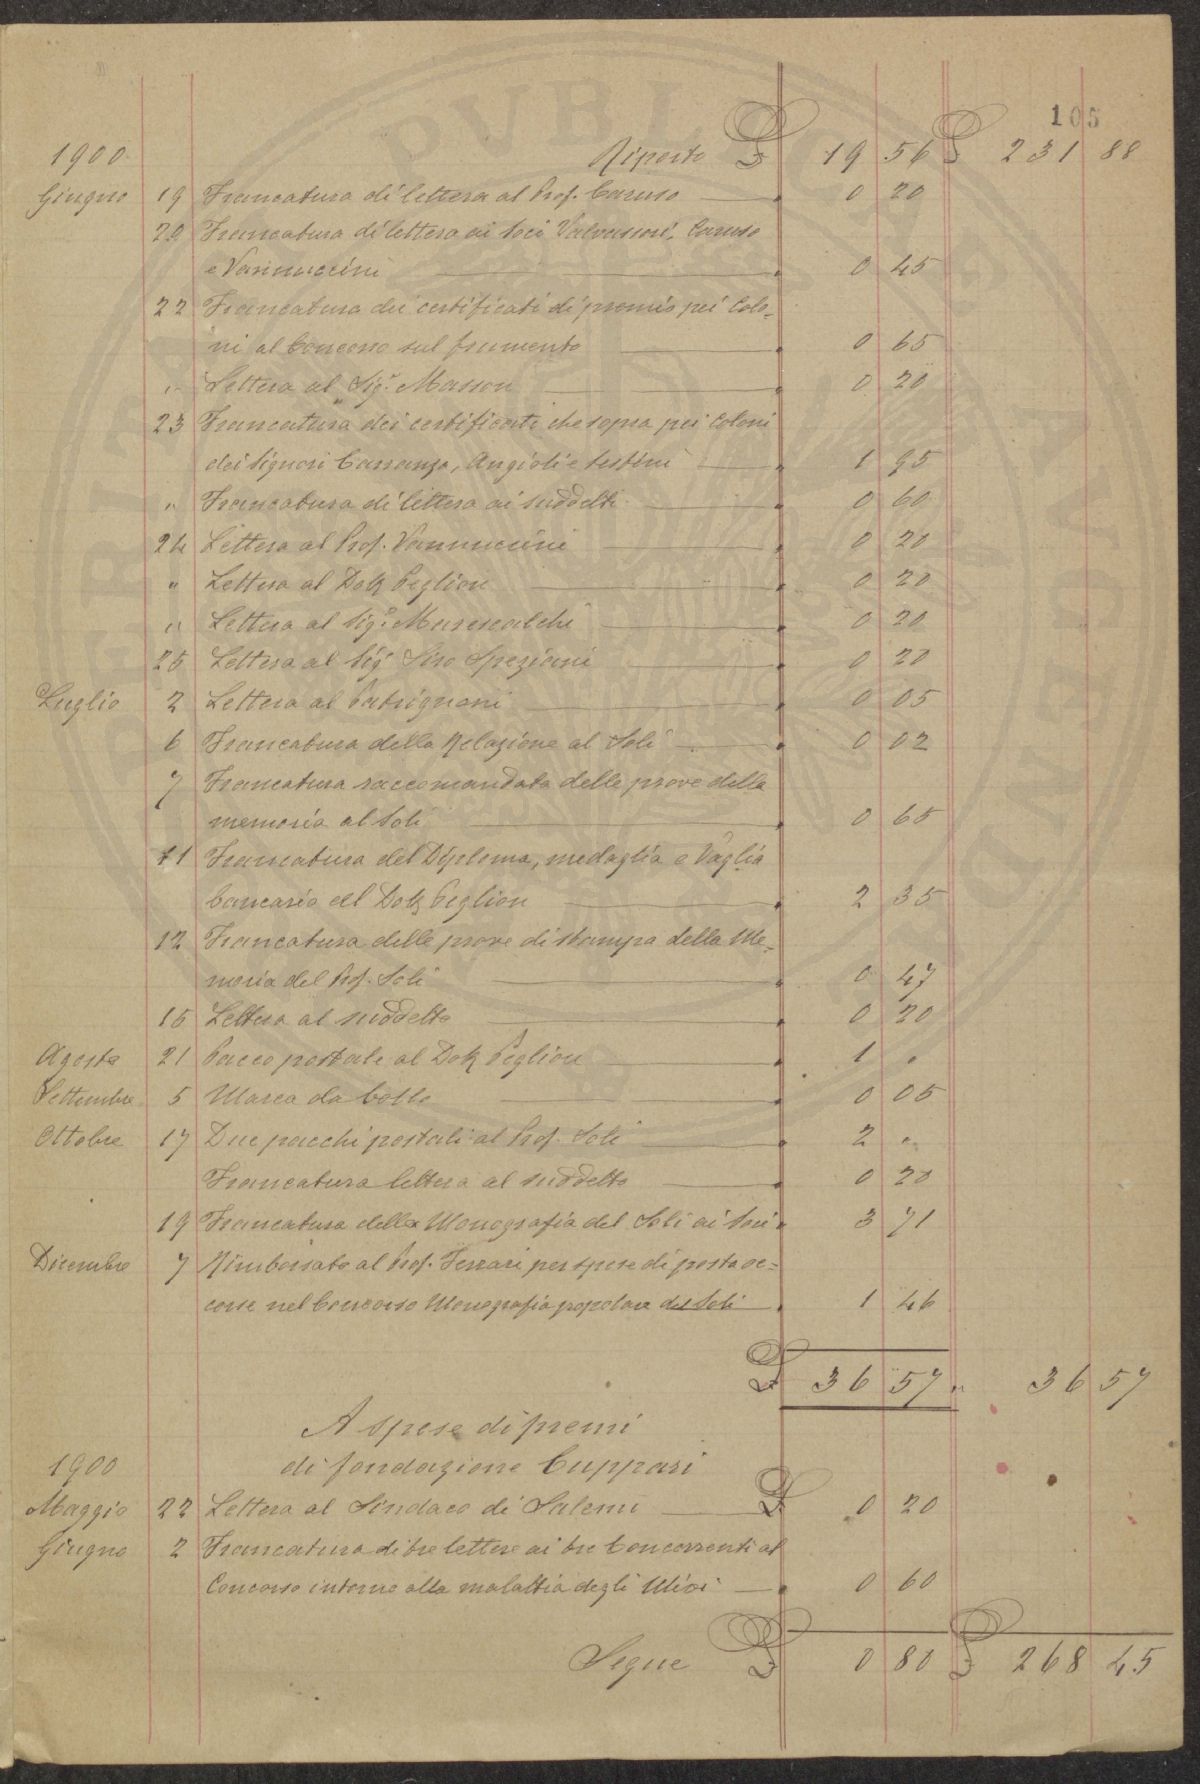 105
1900 Riporto £ 19 56 £ 231 88
Giugno 19 Francatura di lettera al Prof. Caruso 0 20
20 Francatura di lettera ai Soci Valvassori, Caruso
e Vannuccini 0 45
22 Francatura dei certificati di premio pei Colo=
ni al Concorso sul frumento 0 65
" Lettera al Sig.r Masson 0 20
23 Francatura dei certificati che sopra pei Coloni
dei Signori Carranza, Angioli e Testini 1 95
" Francatura di lettera ai suddetti 0 60
24 Lettera al Prof. Vannuccini 0 20
" Lettera al Dott Peglion 0 20
" Lettera al Sig.r Marescalchi 0 20
25 Lettera al Sig.r Siro Speziani 0 20
Luglio 2 Lettera al Patrignani 0 05
6 Francatura della Relazione al Soli 0 02
7 Francatura raccomandata delle prove della
memoria al Soli 0 65
11 Francatura del Diploma, medaglia e Vaglia
bancario al Dott Peglion 2 35
12 Francatura delle prove di stampa della Me=
moria del Prof. Soli 0 47
15 Lettera al suddetto 0 20
Agosto 21 Pacco postale al Dott Peglion 1 "
Settembre 5 Marca da bollo 0 05
Ottobre 17 Due pacchi postali al Prof. Soli 2 "
Francatura lettera al suddetto 0 20
19 Francatura della Monografia del Soli ai Soci 3 71
Dicembre 7 Rimborsato al Prof. Ferrari per spese di posta oc=
corse nel Concorso Monografia popolare del Soli 1 46
£ 36 57 " 36 57
A spese di premi
di fondazione Cuppari
1900
Maggio 22 Lettera al Sindaco di Salemi £ 0 20
Giugno 2 Francatura di tre lettere ai tre Concorrenti al
Concorso intorno alla malattia degli Ulivi 0 60
Segue £ 0 80 £ 268 45